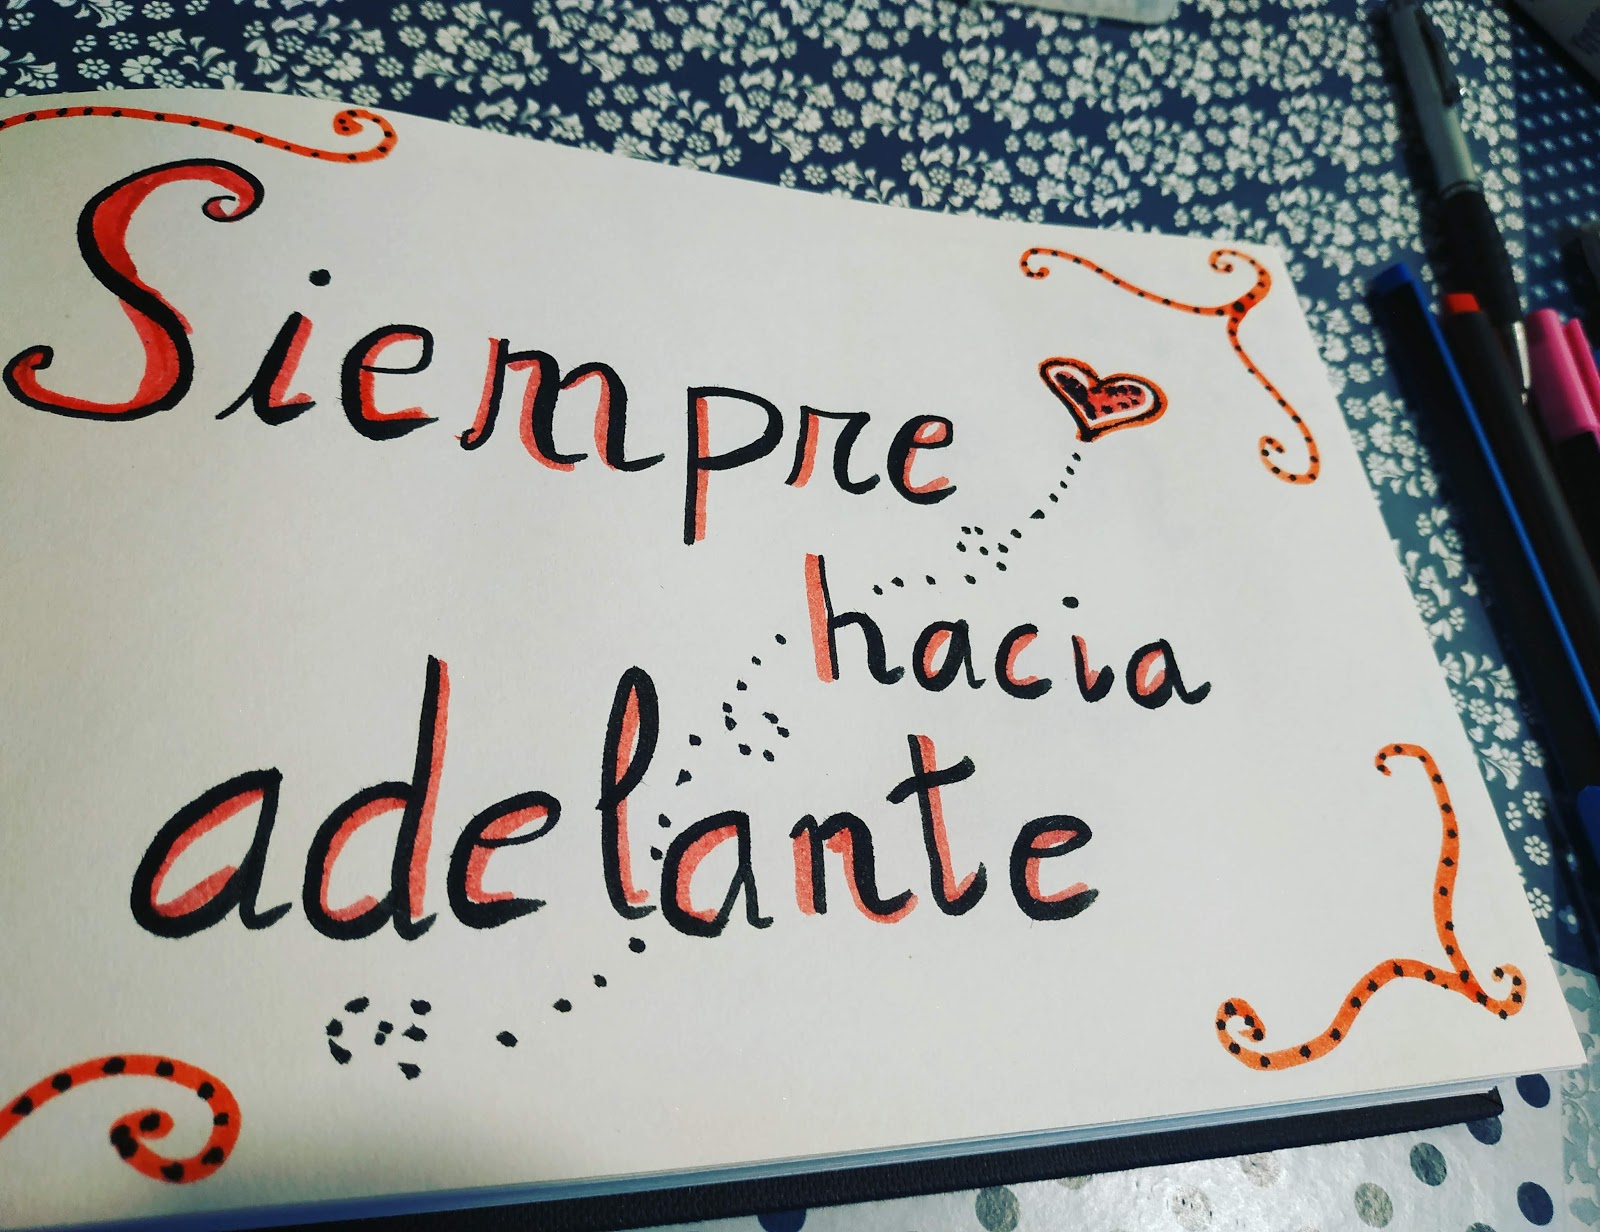 Siempre
hacia
adelante